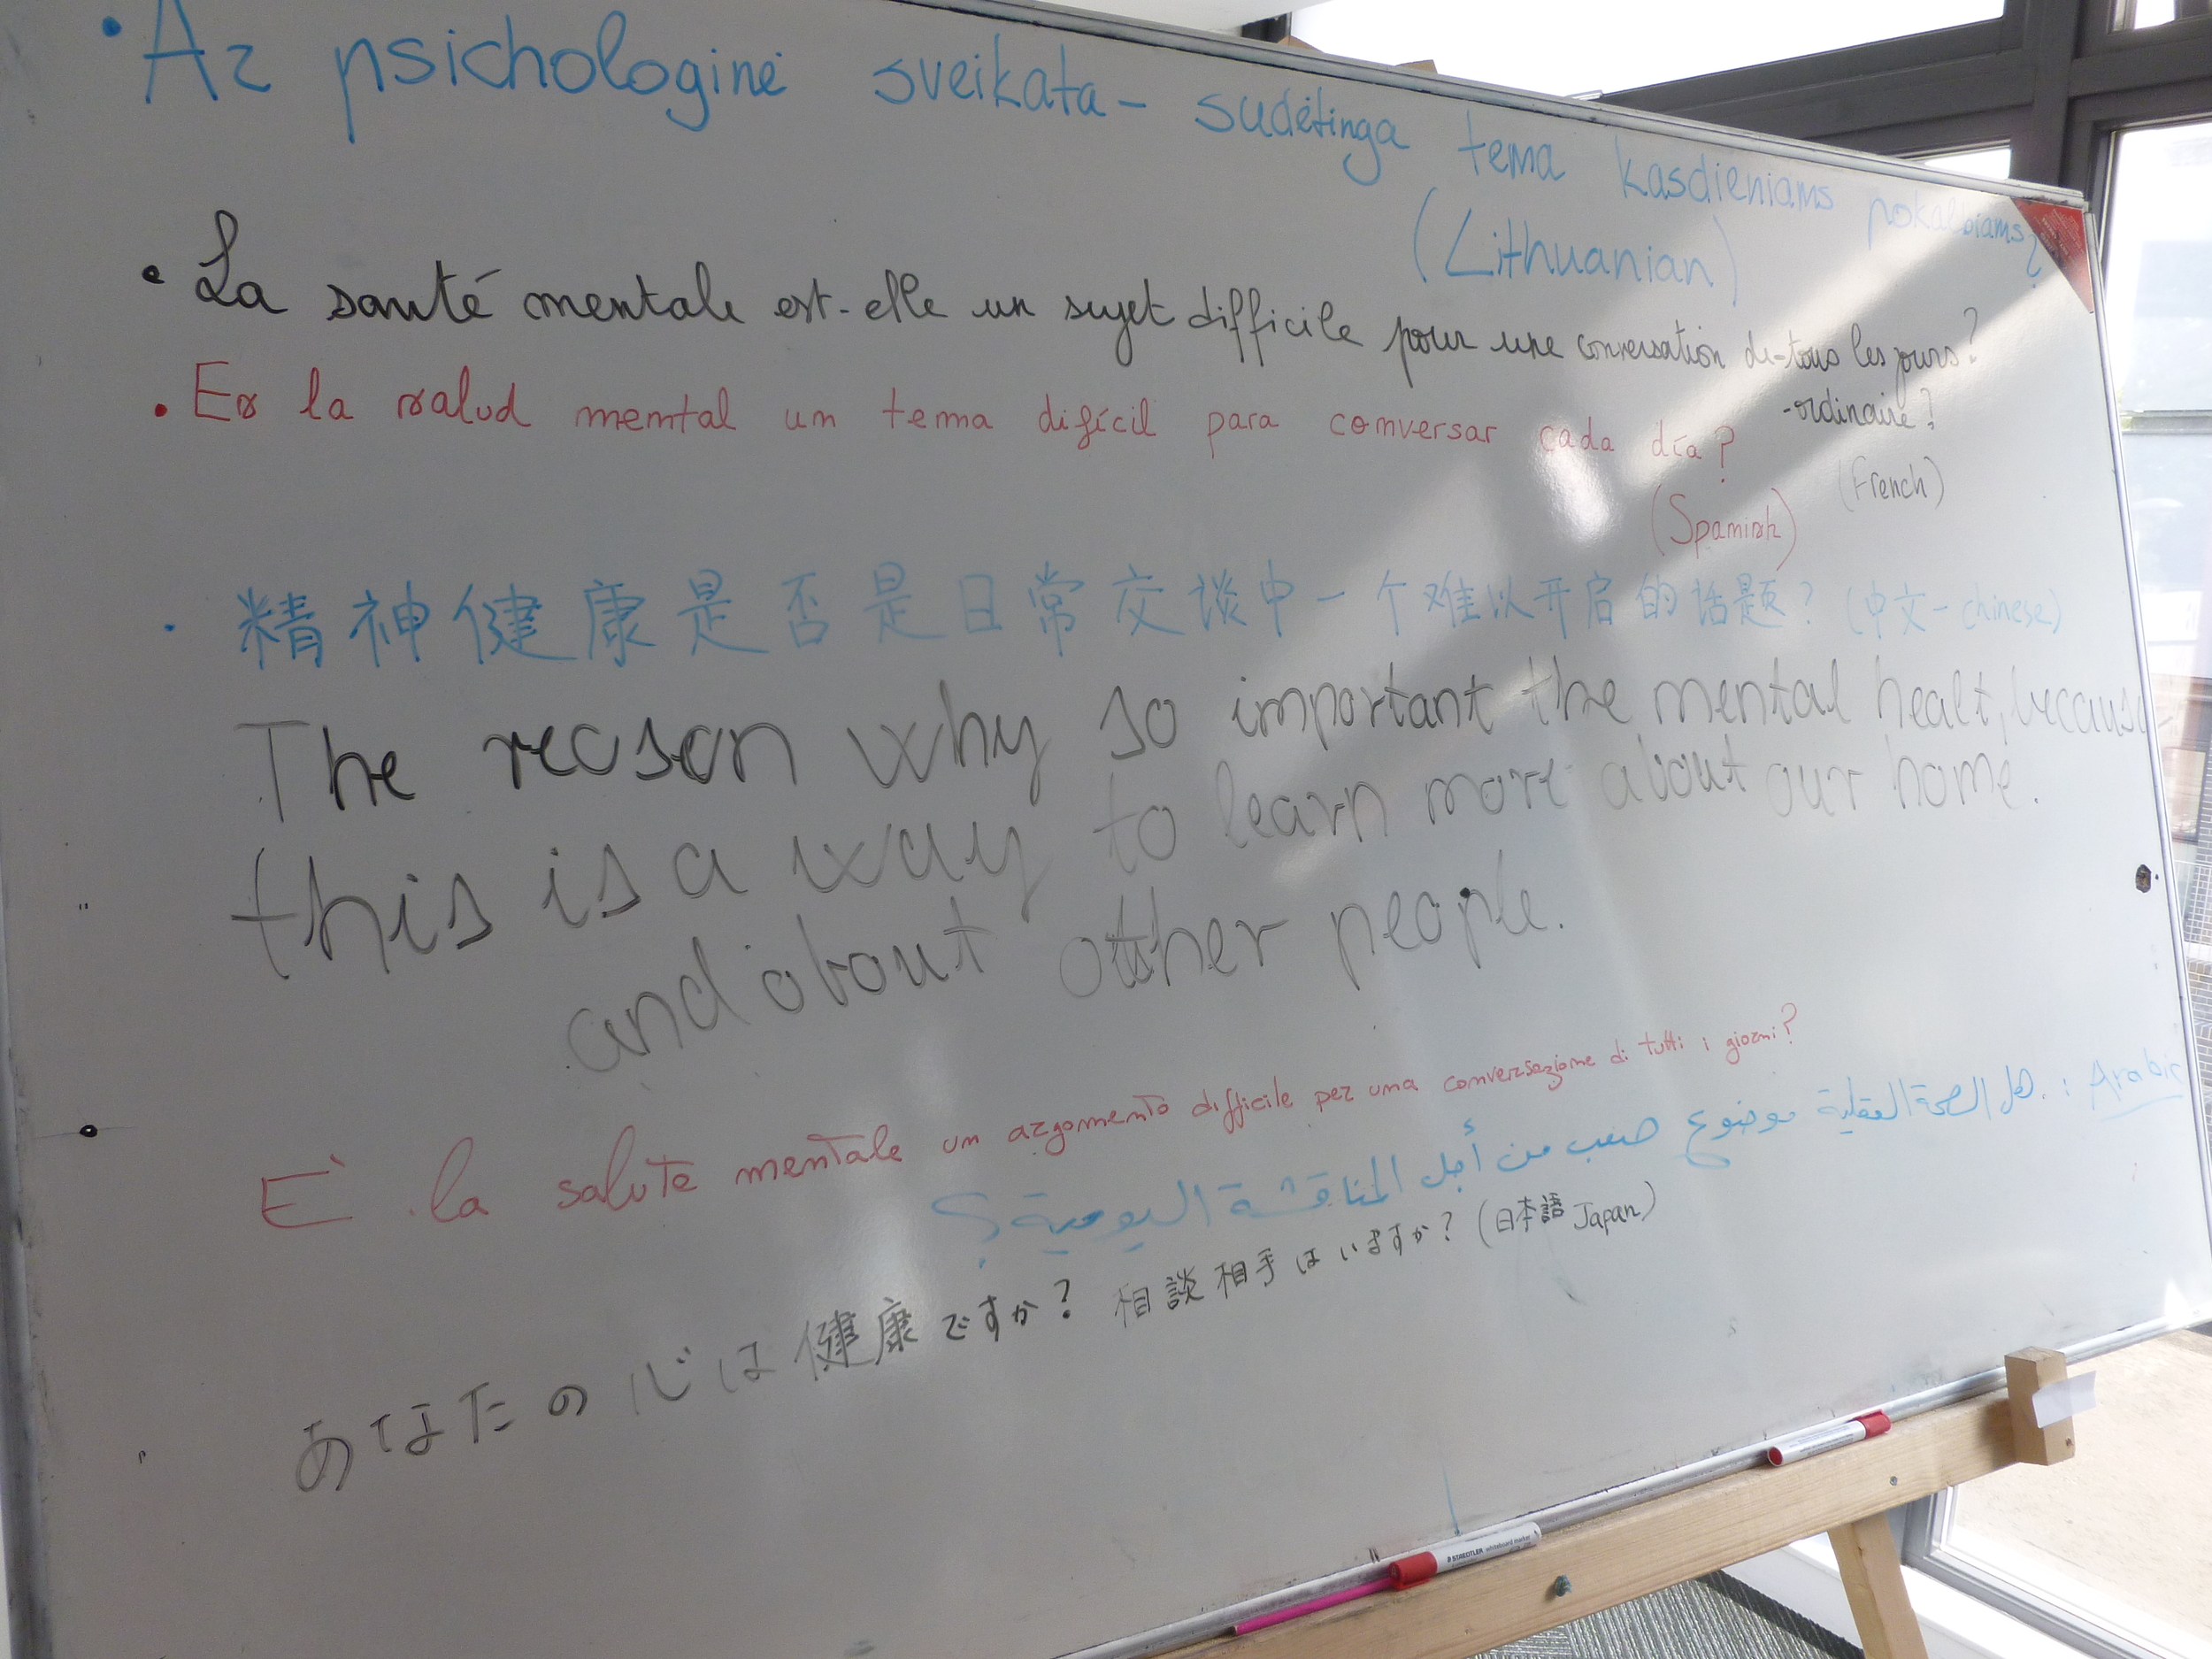 • Ar psichologinė sveikata – sudėtinga tema kasdieniams pokalbiams?
(Lithuanian)
• La santé mentale est-elle un sujet difficile pour une conversation de-tous les jours?
-ordinaire?
(French)
• Es la salud mental un tema difícil para conversar cada día?
(Spanish)
• 精神健康是否是日常交谈中一个难以开启的话题? (中文 - chinese)
The reason why so important the mental healt, because
this is a way to learn more about our home.
and about other people.
È la salute mentale un argomento difficile per una conversazione di tutti i giorni?
Arabic : هل الصحة العقلية موضوع صعب من أجل المناقشة اليومية؟
あなたの心は健康ですか? 相談相手はいますか? (日本語 Japan)
STAEDTLER whiteboard marker